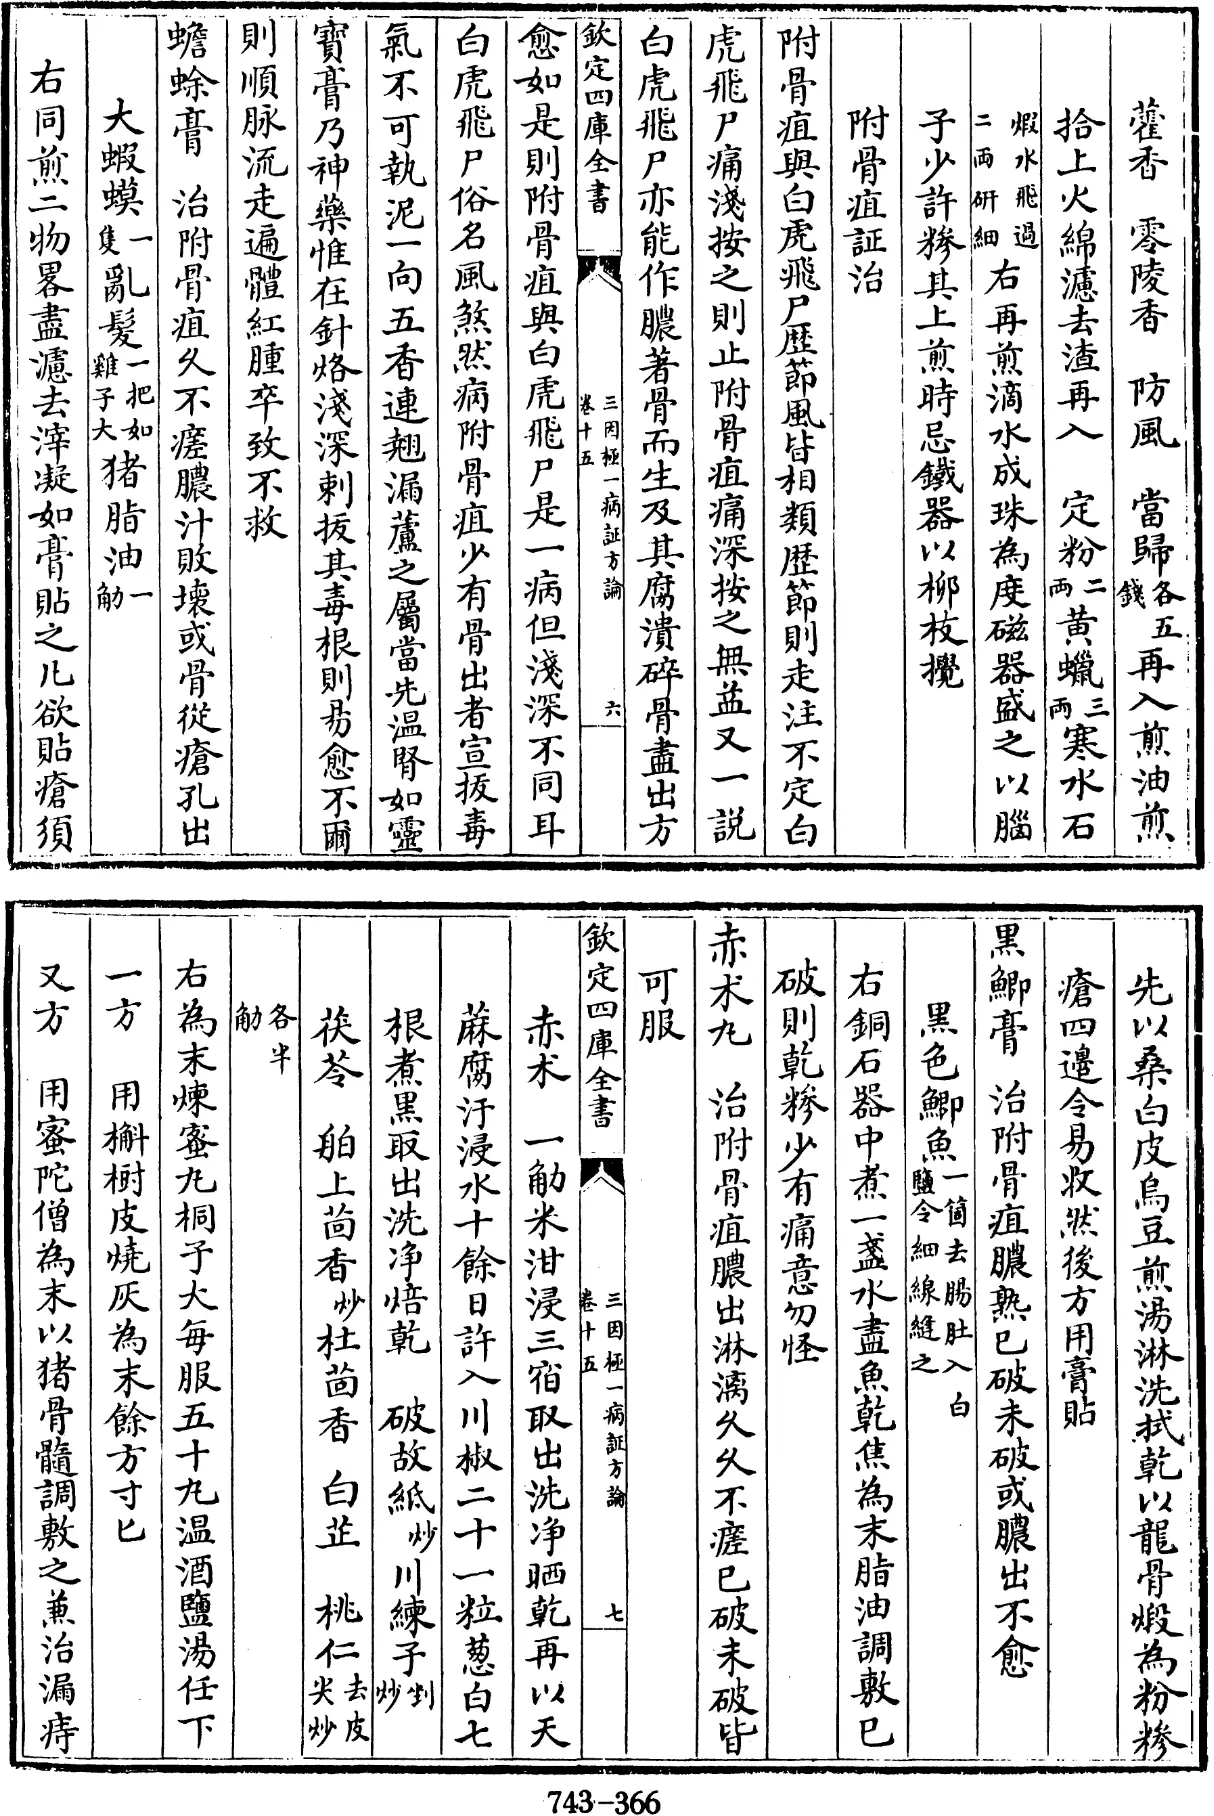 藿香　零陵香　防風　當歸各五錢再入煎油煎
拾上火綿濾去渣再入　定粉二兩黄蠟三兩寒水石
煅水飛過二兩研細右再煎滴水成珠為度磁器盛之以腦
子少許糝其上煎時忌鐵器以柳枝攪
附骨疽証治
附骨疽與白虎飛尸歴節風皆相類歴節則走注不定白
虎飛尸痛淺按之則止附骨疽痛深按之無益又一説
白虎飛尸亦能作膿著骨而生及其腐潰碎骨盡出方
欽定四庫全書　三因極一病証方論卷十五　六
愈如是則附骨疽與白虎飛尸是一病但淺深不同耳
白虎飛尸俗名風煞然病附骨疽少有骨出者宣拔毒
氣不可執泥一向五香連翹漏蘆之屬當先温腎如靈
寶膏乃神藥惟在針烙淺深刺拔其毒根則易愈不爾
則順脉流走遍體紅腫卒致不救
蟾蜍膏　治附骨疽久不瘥膿汁敗壞或骨從瘡孔出
大蝦蟆一隻亂髪一把如雞子大猪脂油一觔
右同煎二物畧盡濾去滓凝如膏貼之凡欲貼瘡須
先以桑白皮烏豆煎湯淋洗拭乾以龍骨煅為粉糝
瘡四邊令易收然後方用膏貼
黑鯽膏　治附骨疽膿熟已破未破或膿出不愈
黑色鯽魚一箇去腸肚入白鹽令細線縫之
右銅石器中煮一盞水盡魚乾焦為末脂油調敷已
破則乾糝少有痛意勿怪
赤术丸　治附骨疽膿出淋漓久久不瘥已破未破皆
可服
欽定四庫全書　三因極一病証方論卷十五　七
赤术　一觔米泔浸三宿取出洗净晒乾再以天
蔴腐汙浸水十餘日許入川椒二十一粒葱白七
根煮黑取出洗净焙乾　破故紙炒川練子剉炒
茯苓　舶上茴香炒杜茴香　白芷　桃仁去皮尖炒
各半觔
右為末煉蜜丸桐子大每服五十丸温酒鹽湯任下
一方　用槲樹皮燒灰為末餘方寸匕
又方　用蜜陀僧為末以猪骨髓調敷之兼治漏痔
743-366